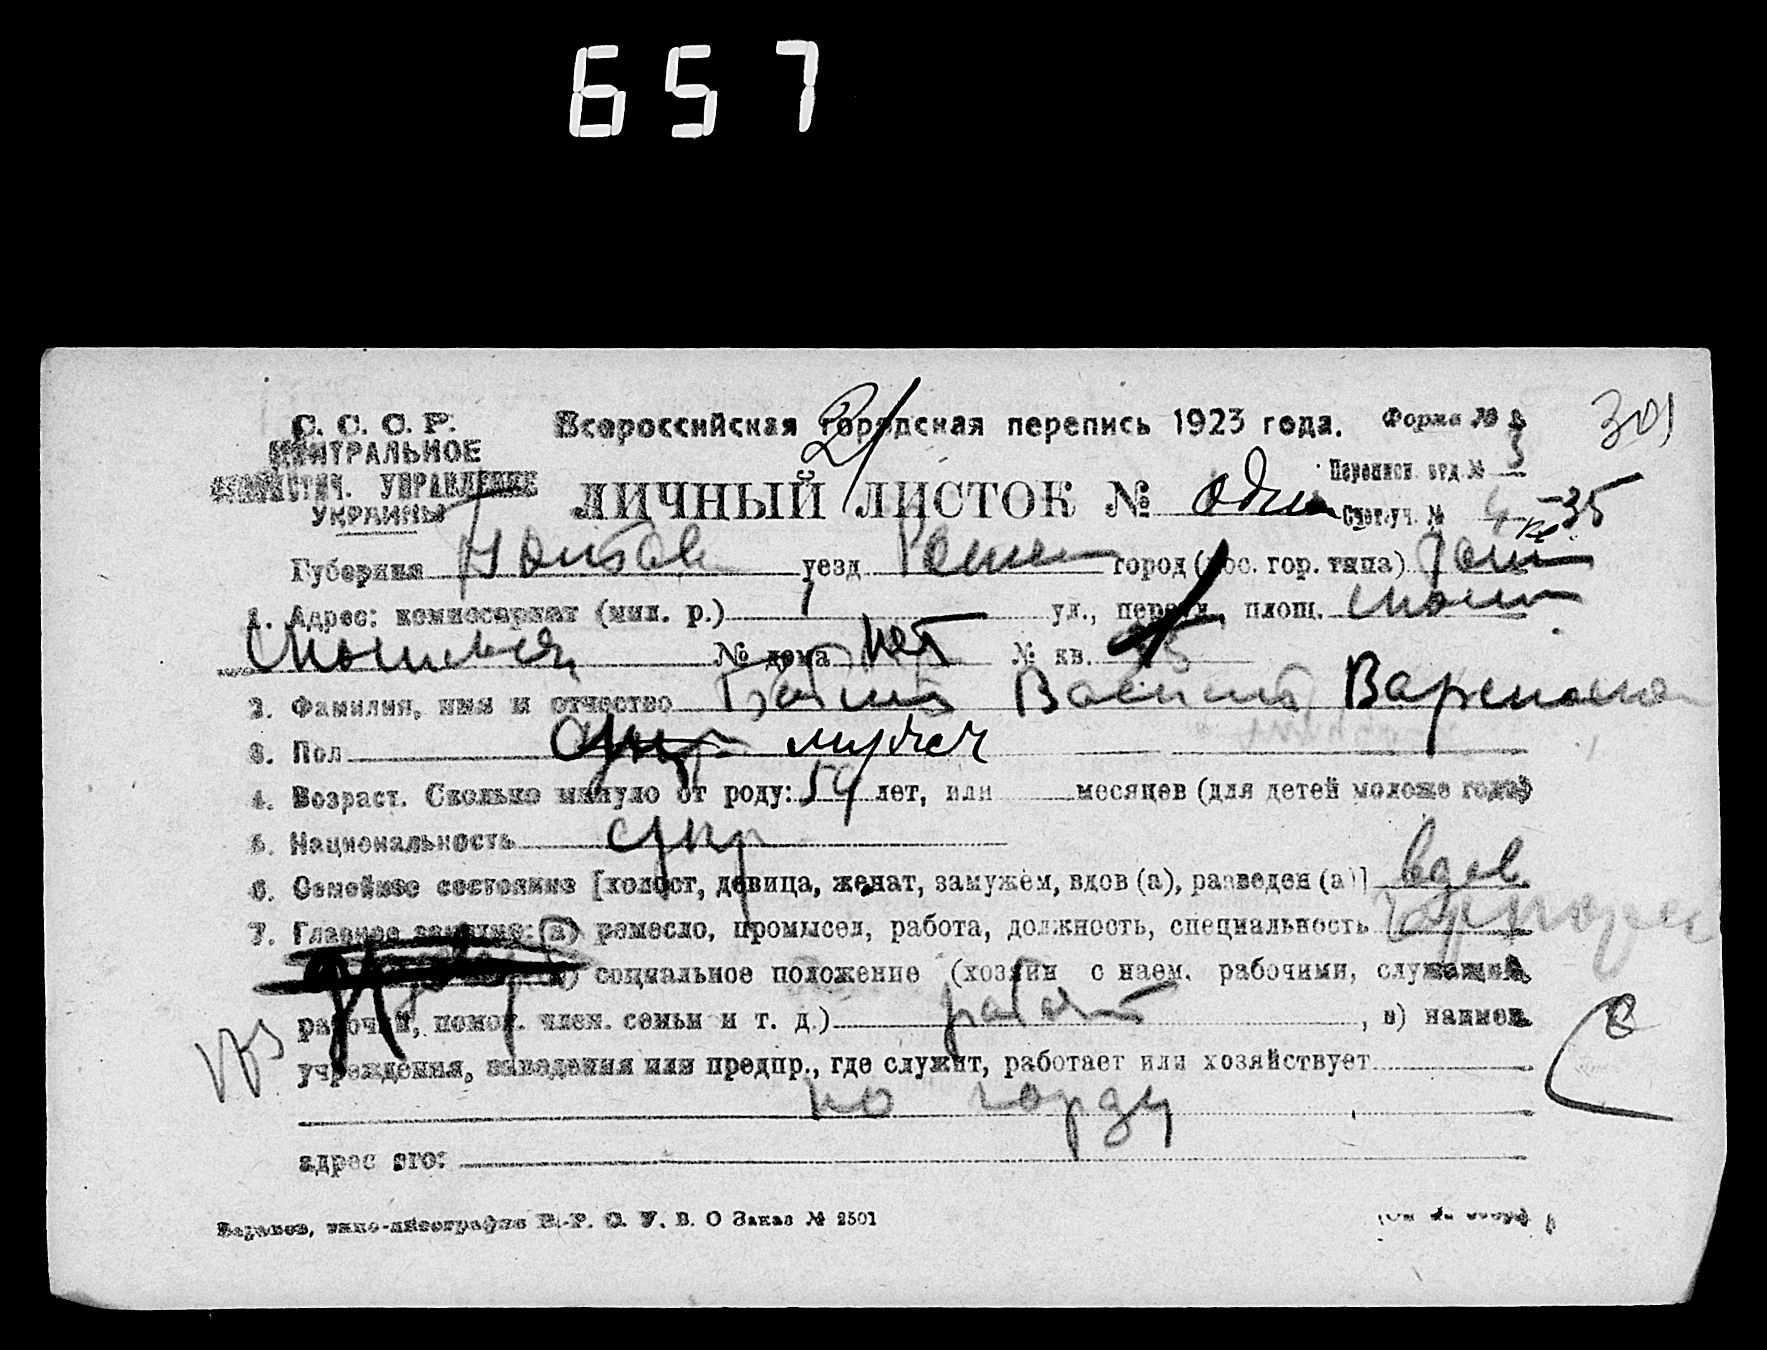 657
С. С. С. Р.
ЦЕНТРАЛЬНОЕ
СТАТИСТИЧ. УПРАВЛЕНИЕ
УКРАИНЫ
Всероссийская городская перепись 1923 года.
Форма № 2
301
21
Переписн. отд. № 3
ЛИЧНЫЙ ЛИСТОК № один
Счет. уч. № 4 -35
Губерния Полтав уезд Ромен город (пос. гор. типа) Ром
1. Адрес: комиссариат (мил. р.) 1 ул., переул., площ.
№ дома нет № кв.
2. Фамилия, имя и отчество Василий
3. Пол мужеск
4. Возраст. Сколько минуло от роду: 54 лет, или месяцев (для детей моложе года)
5. Национальность укр
6. Семейное состояние [холост, девица, женат, замужем, вдов (а), разведен (а)] вдов
7. Главное занятие: а) ремесло, промысел, работа, должность, специальность
б) социальное положение (хозяин с наем. рабочими, служащий,
рабочий, помог. член. семьи и т. д.) работ , в) наимен.
учреждения, заведения или предпр., где служит, работает или хозяйствует
по городу
адрес его:
Харьков, типо-литография В.-Р. С. У. В. О Заказ № 2501